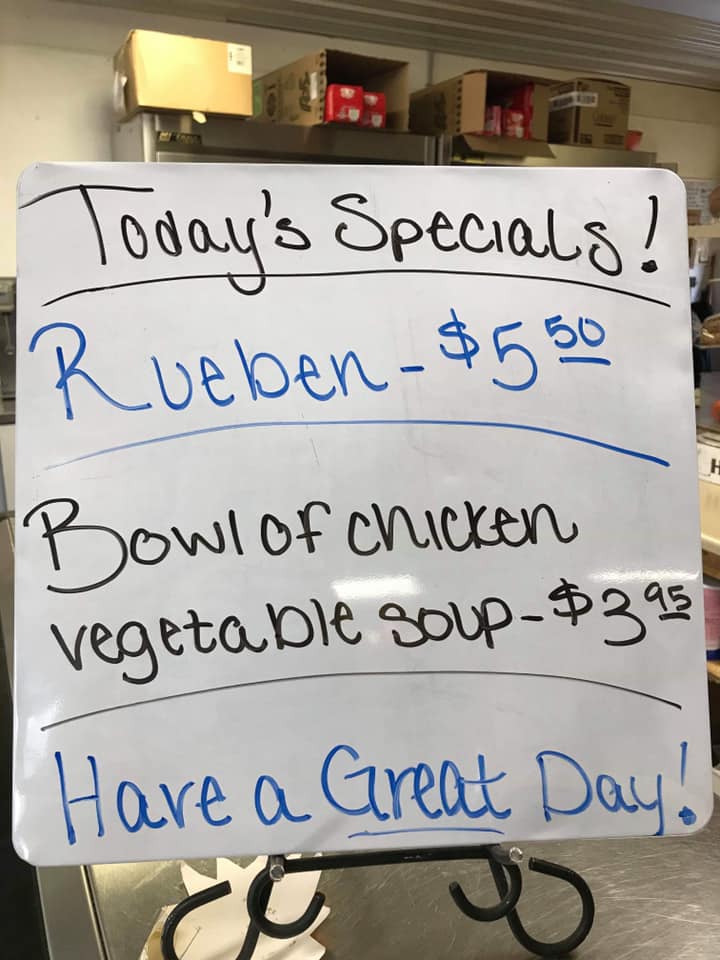 Today's Specials!
Rueben - $5 50
Bowl of chicken
vegetable soup - $3 95
Have a Great Day!